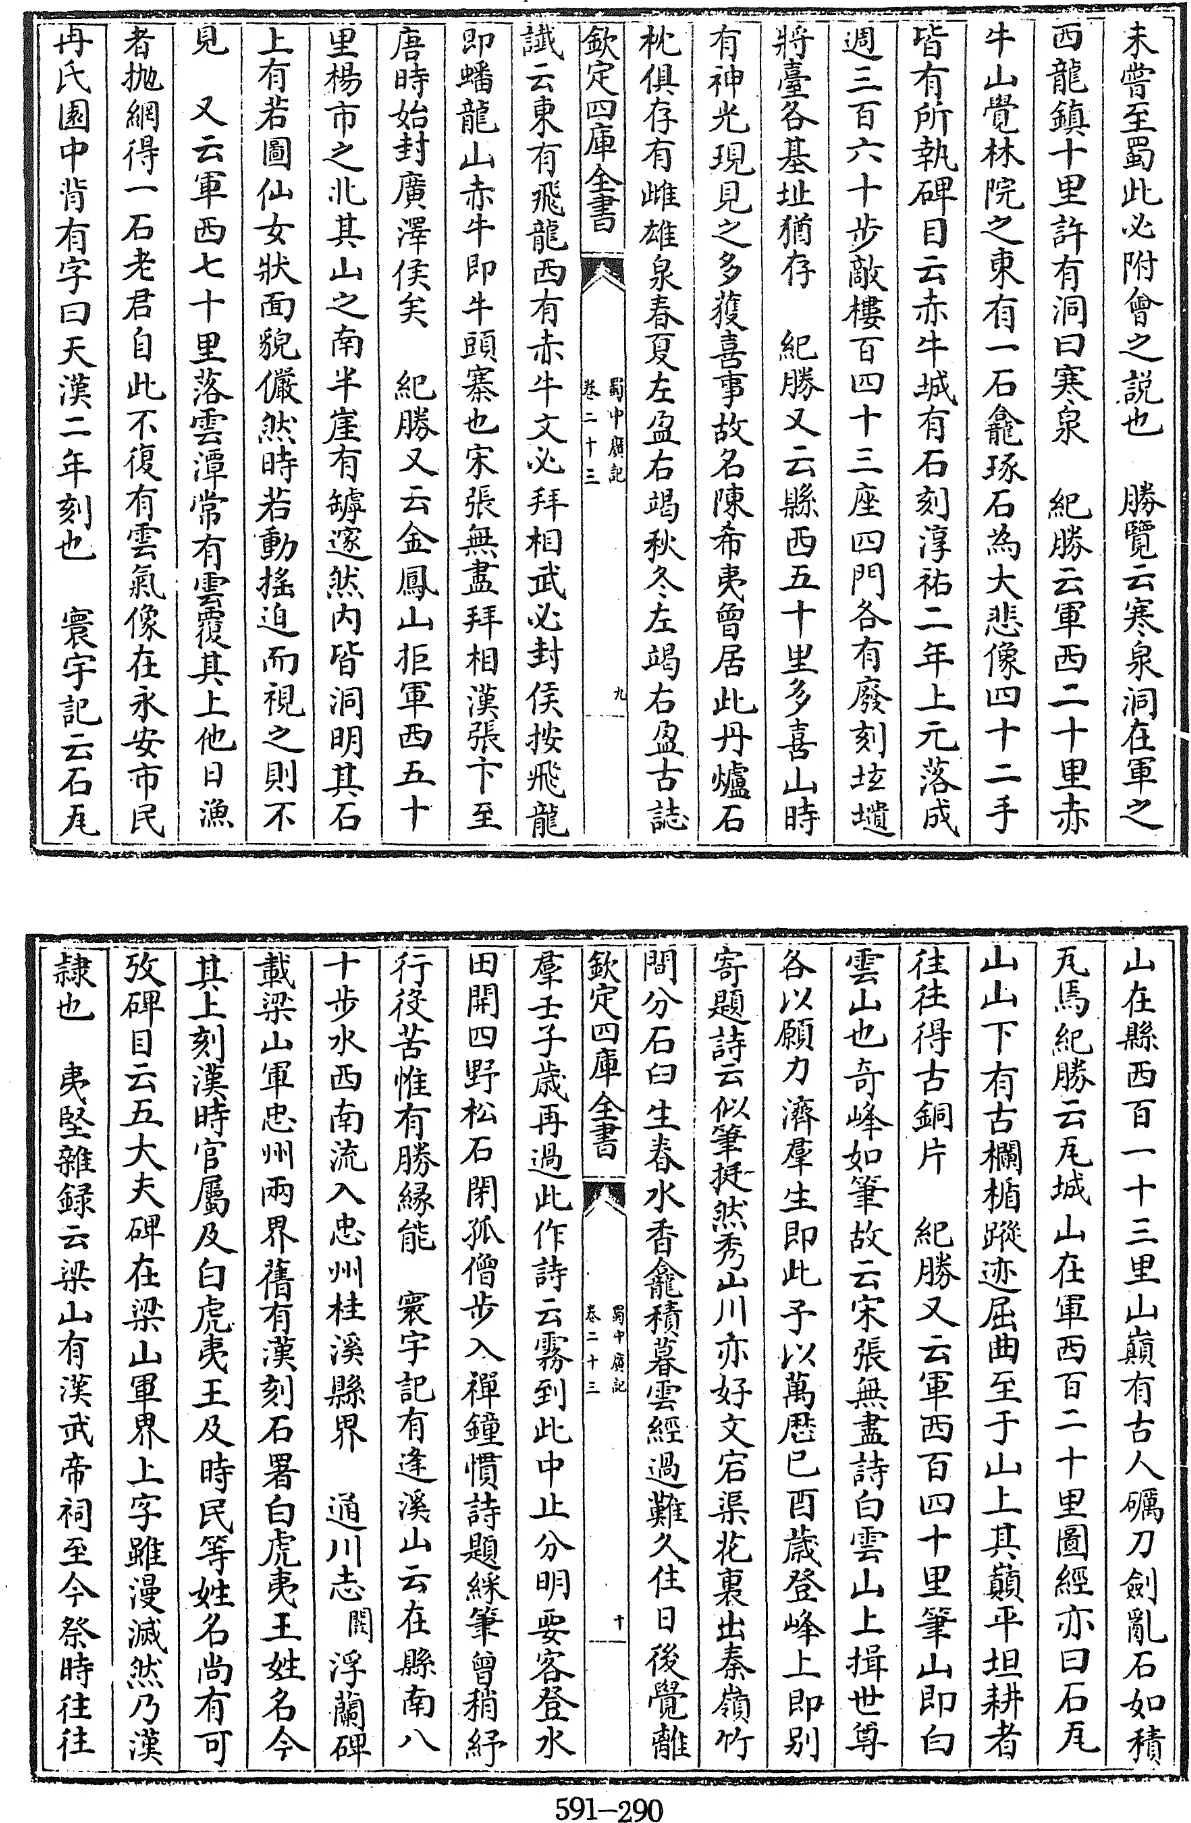 未嘗至蜀此必附會之説也　勝覽云寒泉洞在軍之
西龍鎮十里許有洞曰寒泉　紀勝云軍西二十里赤
牛山覺林院之東有一石龕琢石為大悲像四十二手
皆有所執碑目云赤牛城有石刻淳祐二年上元落成
週三百六十步敵樓百四十三座四門各有廢刻垃墻
將臺各基址猶存　紀勝又云縣西五十里多喜山時
有神光現見之多獲喜事故名陳希夷曾居此丹爐石
枕俱存有雌雄泉春夏左盈右竭秋冬左竭右盈古誌
欽定四庫全書
蜀中廣記
卷二十三
九
讖云東有飛龍西有赤牛文必拜相武必封侯按飛龍
即蟠龍山赤牛即牛頭寨也宋張無盡拜相漢張卞至
唐時始封廣澤侯矣　紀勝又云金鳳山拒軍西五十
里楊市之北其山之南半崖有罅邃然内皆洞明其石
上有若圖仙女狀面貌儼然時若動搖迫而視之則不
見　又云軍西七十里落雲潭常有雲覆其上他日漁
者抛網得一石老君自此不復有雲氣像在永安市民
冉氏園中背有字曰天漢二年刻也　寰宇記云石瓦
山在縣西百一十三里山巔有古人礪刀劍亂石如積
瓦焉紀勝云瓦城山在軍西百二十里圖經亦曰石瓦
山山下有古欄楯蹤迹屈曲至于山上其巔平坦耕者
往往得古銅片　紀勝又云軍西百四十里筆山即白
雲山也奇峰如筆故云宋張無盡詩白雲山上揖世尊
各以願力濟羣生即此予以萬歴已酉歲登峰上即别
寄題詩云似筆挺然秀山川亦好文宕渠花裏出秦嶺竹
間分石臼生春水香龕積暮雲經過難久住日後覺離
欽定四庫全書
蜀中廣記
卷二十三
十
羣壬子歲再過此作詩云霧到此中止分明要客登水
田開四野松石閉孤僧步入禪鐘慣詩題綵筆曾稍紓
行役苦惟有勝縁能　寰宇記有逢溪山云在縣南八
十步水西南流入忠州桂溪縣界　通川志闕浮蘭碑
載梁山軍忠州兩界舊有漢刻石署白虎夷王姓名今
其上刻漢時官屬及白虎夷王及時民等姓名尚有可
攷碑目云五大夫碑在梁山軍界上字雖漫滅然乃漢
隸也　夷堅雜録云梁山有漢武帝祠至今祭時往往
591—290